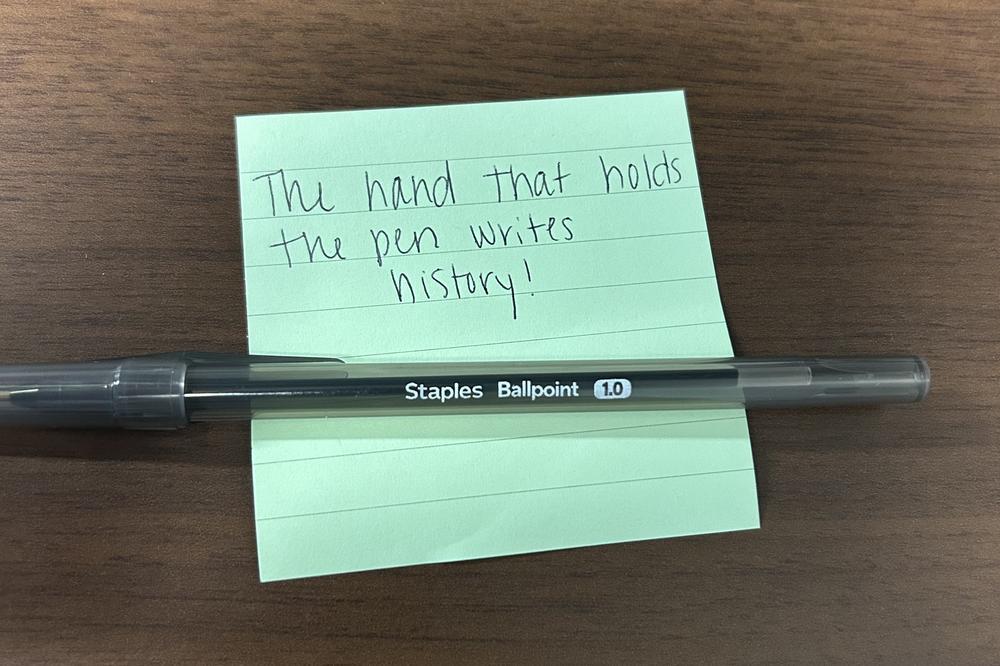 The hand that holds
the pen writes
history!
Staples Ballpoint 1.0